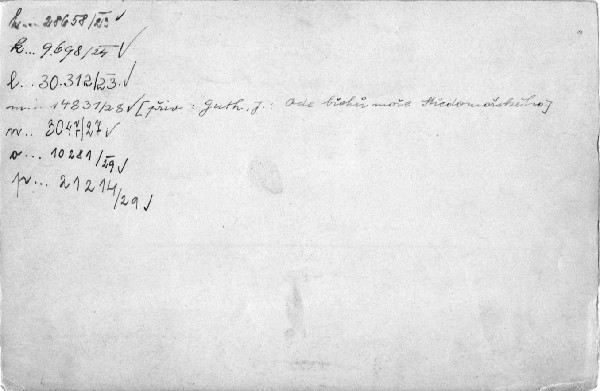 h... 28658/23 ✓
k... 9.698/24 ✓
l... 30.312/23. ✓
m... 14831/28 ✓ [přív: Guth, J.: Ode břehů moře Středomořského]
n... 3047/27 ✓
o... 10281/29 ✓
p... 21214/29 ✓